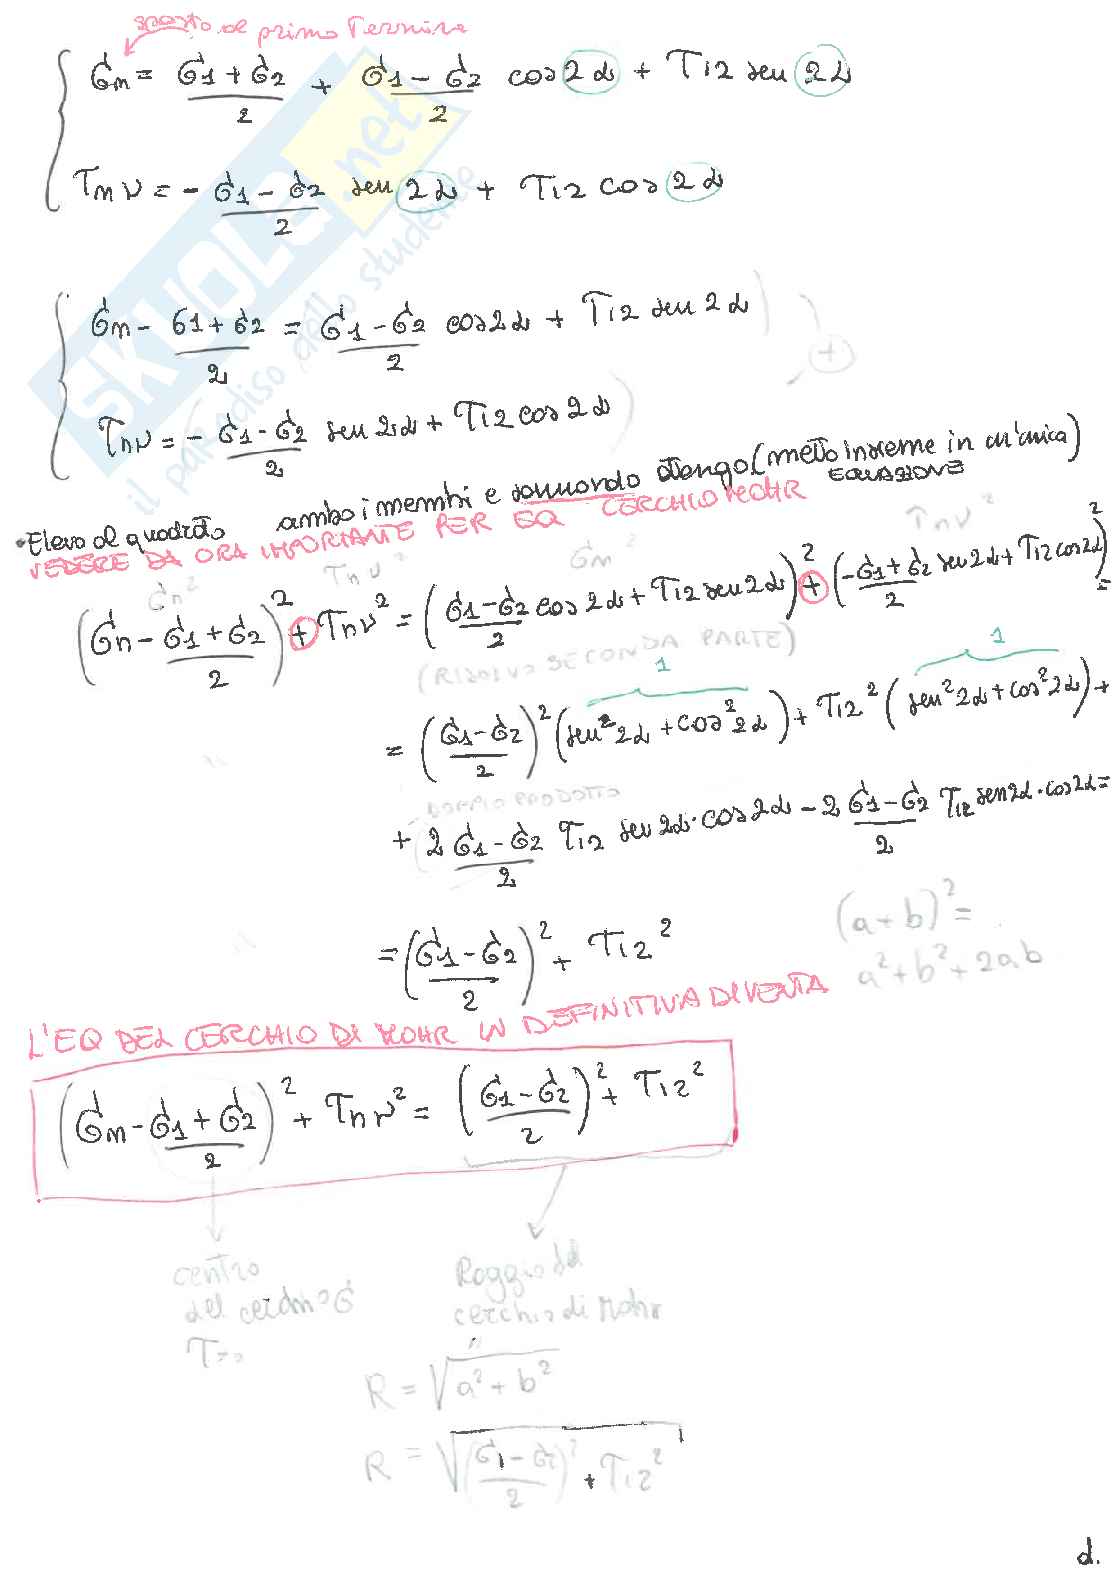 sposto al primo Termine
σn = σ1 + σ2 / 2 + σ1 - σ2 / 2 cos 2α + τ12 sen 2α
τnν = - σ1 - σ2 / 2 sen 2α + τ12 cos 2α
σn - σ1 + σ2 / 2 = σ1 - σ2 / 2 cos 2α + τ12 sen 2α
+
τnν = - σ1 - σ2 / 2 sen 2α + τ12 cos 2α
•Elevo al quadrato ambo i membri e sommando ottengo (metto insieme in un'unica) EQUAZIONE
VEDERE DA ORA IMPORTANTE PER EQ CERCHIO MOHR
σn² τnν² σn² τnν²
(σn - σ1 + σ2 / 2)² + τnν² = (σ1 - σ2 / 2 cos 2α + τ12 sen 2α)² + (-σ1 + σ2 / 2 sen 2α + τ12 cos 2α)² =
(RISOLVO SECONDA PARTE)
1 1
= (σ1 - σ2 / 2)² (sen² 2α + cos² 2α) + τ12² (sen² 2α + cos² 2α) +
DOPPIO PRODOTTO
+ 2 σ1 - σ2 / 2 τ12 sen 2α · cos 2α - 2 σ1 - σ2 / 2 τ12 sen 2α · cos 2α =
= (σ1 - σ2 / 2)² + τ12²
(a + b)² =
a² + b² + 2ab
L'EQ DEL CERCHIO DI MOHR IN DEFINITIVA DIVENTA
(σn - σ1 + σ2 / 2)² + τnν² = (σ1 - σ2 / 2)² + τ12²
centro
del cerchio σ
τ=0
Raggio del
cerchio di Mohr
R = √a² + b²
R = √(σ1 - σ2 / 2)² + τ12²
d.
SKUOLA.net
il paradiso dello studente